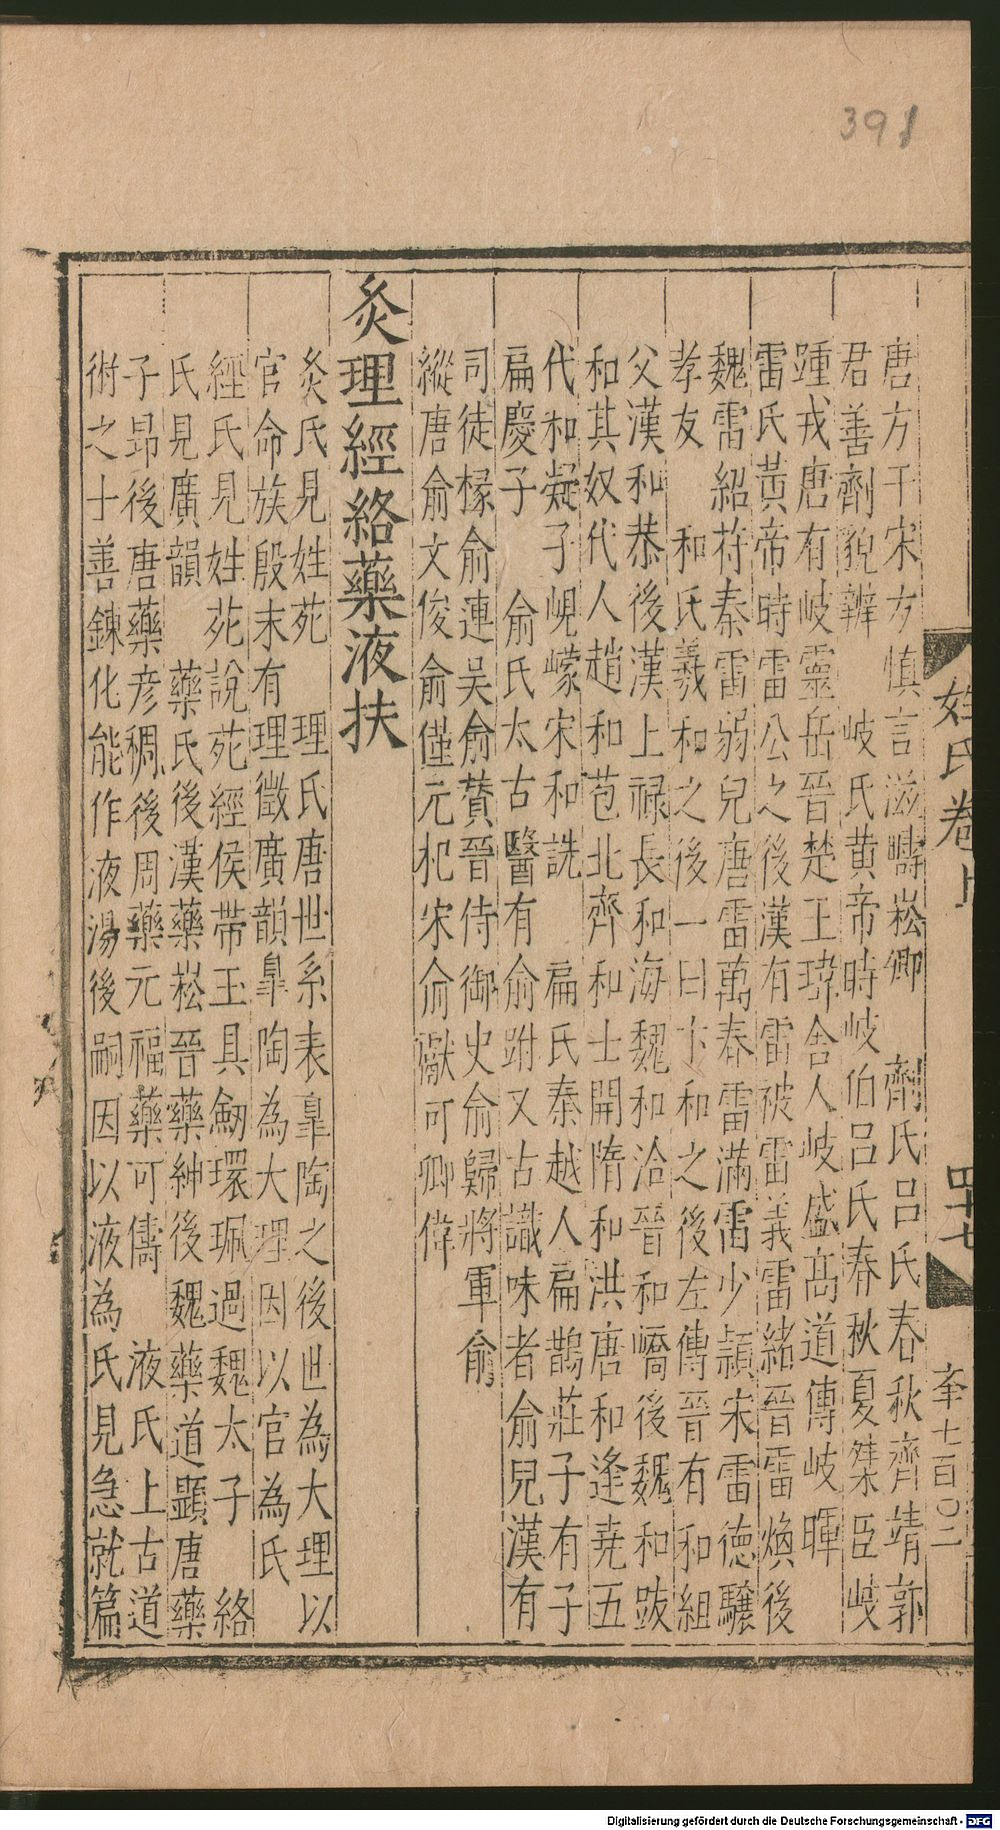 391
姓氏卷上
四十七
夲七百〇二
唐方干宋方慎言滋疇崧卿　劑氏呂氏春秋齊靖郭
君善劑貌辨　岐氏黄帝時岐伯呂氏春秋夏桀臣岐
踵戎唐有岐靈岳晉楚王瑋舍人岐盛髙道傳岐暉
雷氏黃帝時雷公之後漢有雷被雷義雷緒晉雷煥後
魏雷紹苻秦雷弱兒唐雷萬春雷滿雷少頴宋雷徳驤
孝友　和氏羲和之後一曰卞和之後左傳晉有和組
父漢和恭後漢上祿長和海魏和洽晉和嶠後魏和跋
和其奴代人趙和苞北齊和士開隋和洪唐和逢堯五
代和凝子峴㠓宋和詵　扁氏秦越人扁鵲莊子有子
扁慶子　俞氏太古醫有俞跗又古識味者俞兒漢有
司徒椽俞連吳俞賛晉侍御史俞歸將軍俞
縱唐俞文俊俞僅元杞宋俞獻可卿偉
炙理經絡藥液扶
炙氏見姓苑　理氏唐世系表臯陶之後世為大理以
官命族殷末有理徵廣韻臯陶為大理因以官為氏
經氏見姓苑說苑經侯帶玉具劒環珮過魏太子　絡
氏見廣韻　藥氏後漢藥崧晉藥紳後魏藥道顯唐藥
子昂後唐藥彦稠後周藥元福藥可儔　液氏上古道
術之士善鍊化能作液湯後嗣因以液為氏見急就篇
Digitalisierung gefördert durch die Deutsche Forschungsgemeinschaft - DFG